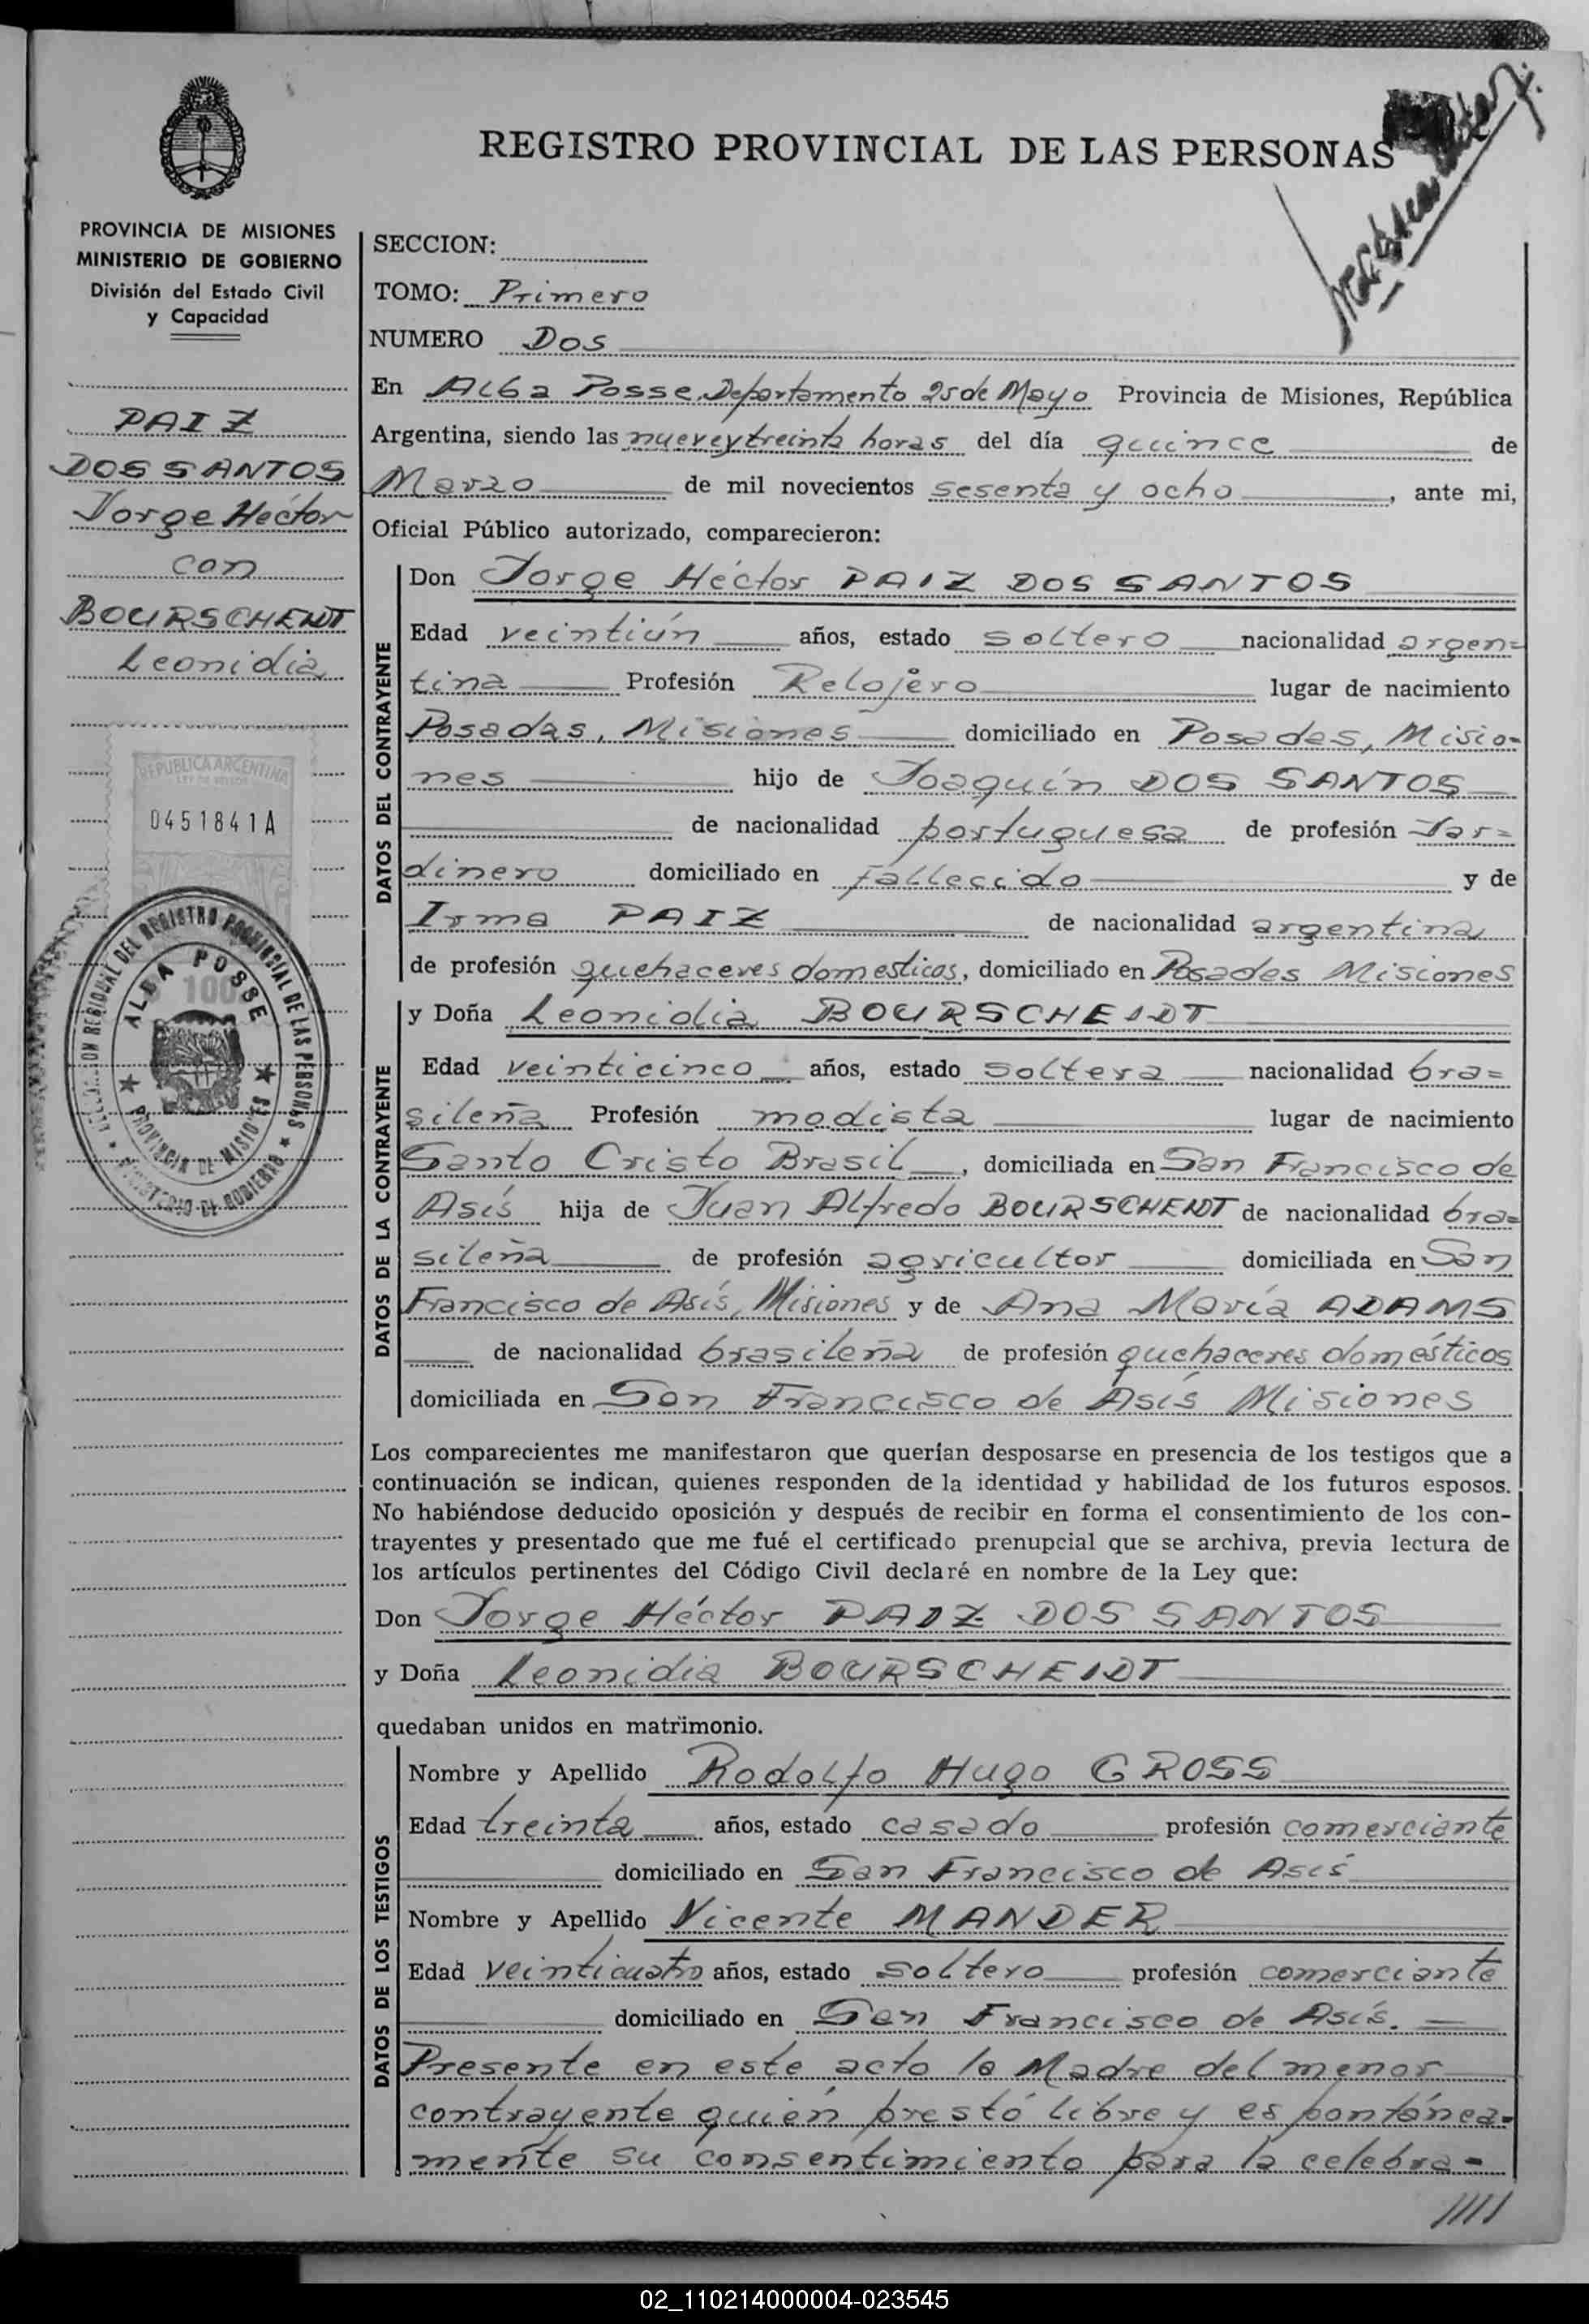 REGISTRO PROVINCIAL DE LAS PERSONAS
PROVINCIA DE MISIONES
MINISTERIO DE GOBIERNO
División del Estado Civil
y Capacidad
PAIZ
DOS SANTOS
Jorge Héctor
con
BOURSCHEIDT
Leonidia
REPUBLICA ARGENTINA
0451841A
100
ALBA POSSE
PROVINCIA DE MISIONES
MINISTERIO DE GOBIERNO
SECCION:
TOMO: Primero
NUMERO Dos
En Alba Posse, Departamento 25 de Mayo Provincia de Misiones, República
Argentina, siendo las nueve y treinta horas del día quince de
Marzo de mil novecientos sesenta y ocho, ante mi,
Oficial Público autorizado, comparecieron:
DATOS DEL CONTRAYENTE
Don Jorge Héctor PAIZ DOS SANTOS
Edad veintiún años, estado soltero nacionalidad argen=
tina Profesión Relojero lugar de nacimiento
Posadas, Misiones domiciliado en Posadas, Misio-
nes hijo de Joaquín DOS SANTOS
de nacionalidad portuguesa de profesión Jar=
dinero domiciliado en fallecido y de
Irma PAIZ de nacionalidad argentina
de profesión quehaceres domesticos, domiciliado en Posadas Misiones
DATOS DE LA CONTRAYENTE
y Doña Leonidia BOURSCHEIDT
Edad veinticinco años, estado soltera nacionalidad bra=
sileña Profesión modista lugar de nacimiento
Santo Cristo Brasil, domiciliada en San Francisco de
Asís hija de Juan Alfredo BOURSCHEIDT de nacionalidad bra=
sileña de profesión agricultor domiciliada en San
Francisco de Asís, Misiones y de Ana María ADAMS
de nacionalidad brasileña de profesión quehaceres domésticos
domiciliada en San Francisco de Asís Misiones
Los comparecientes me manifestaron que querían desposarse en presencia de los testigos que a
continuación se indican, quienes responden de la identidad y habilidad de los futuros esposos.
No habiéndose deducido oposición y después de recibir en forma el consentimiento de los con-
trayentes y presentado que me fué el certificado prenupcial que se archiva, previa lectura de
los artículos pertinentes del Código Civil declaré en nombre de la Ley que:
Don Jorge Héctor PAIZ DOS SANTOS
y Doña Leonidia BOURSCHEIDT
quedaban unidos en matrimonio.
DATOS DE LOS TESTIGOS
Nombre y Apellido Rodolfo Hugo GROSS
Edad treinta años, estado casado profesión comerciante
domiciliado en San Francisco de Asís
Nombre y Apellido Vicente MANDER
Edad veinticuatro años, estado soltero profesión comerciante
domiciliado en San Francisco de Asís.
Presente en este acto la Madre del menor
contrayente quien prestó libre y espontánea-
mente su consentimiento para la celebra-
////
02_110214000004-023545